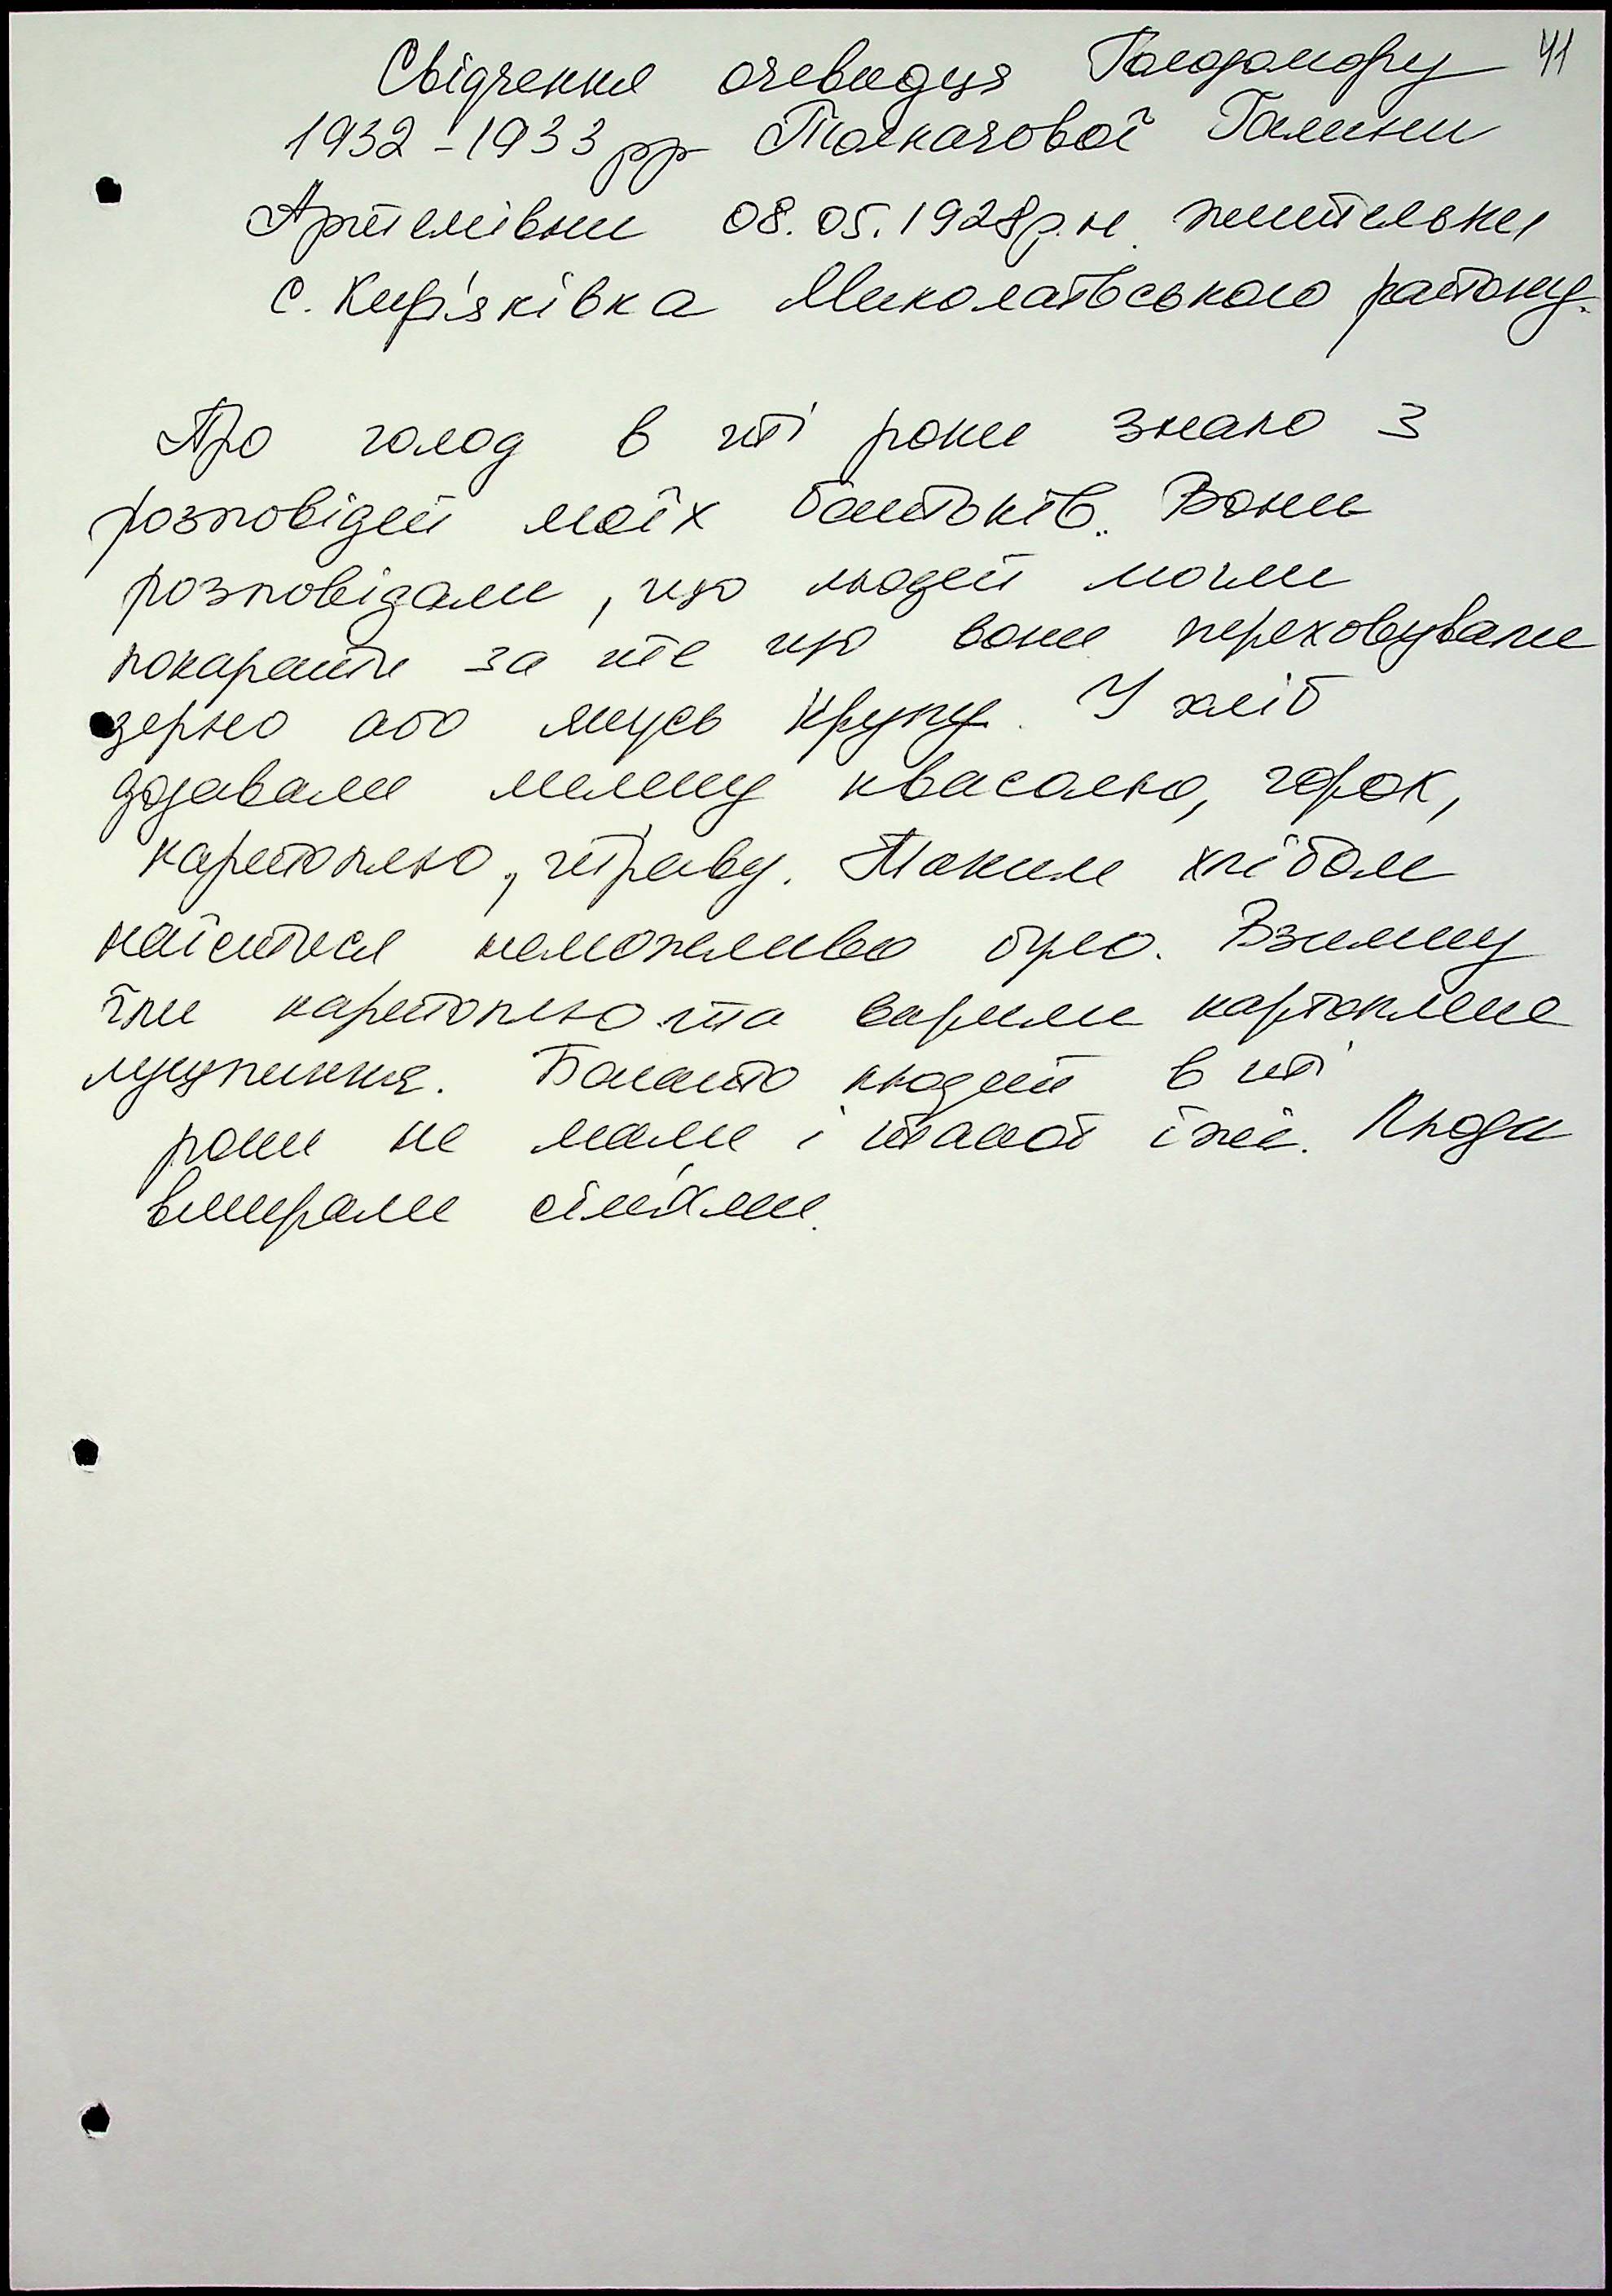 Свідчення очевидця Голодомору 41
1932-1933 рр Толкачової Галини
Артемівни 08.05.1928 р.н. жительки
с. Кир'яківка Миколаївського району.
Про голод в ті роки знаю з
розповідей моїх батьків. Вони
розповідали, що людей могли
покарати за те що вони переховували
зерно або якусь крупу. У хліб
додавали мелену квасолю, горох,
картоплю, траву. Таким хлібом
наїстися неможливо було. Взимку
їли картоплю та варили картопляне
лушпиння. Багато людей в ті
роки не мали і такої їжі. Люди
вмирали сім'ями.